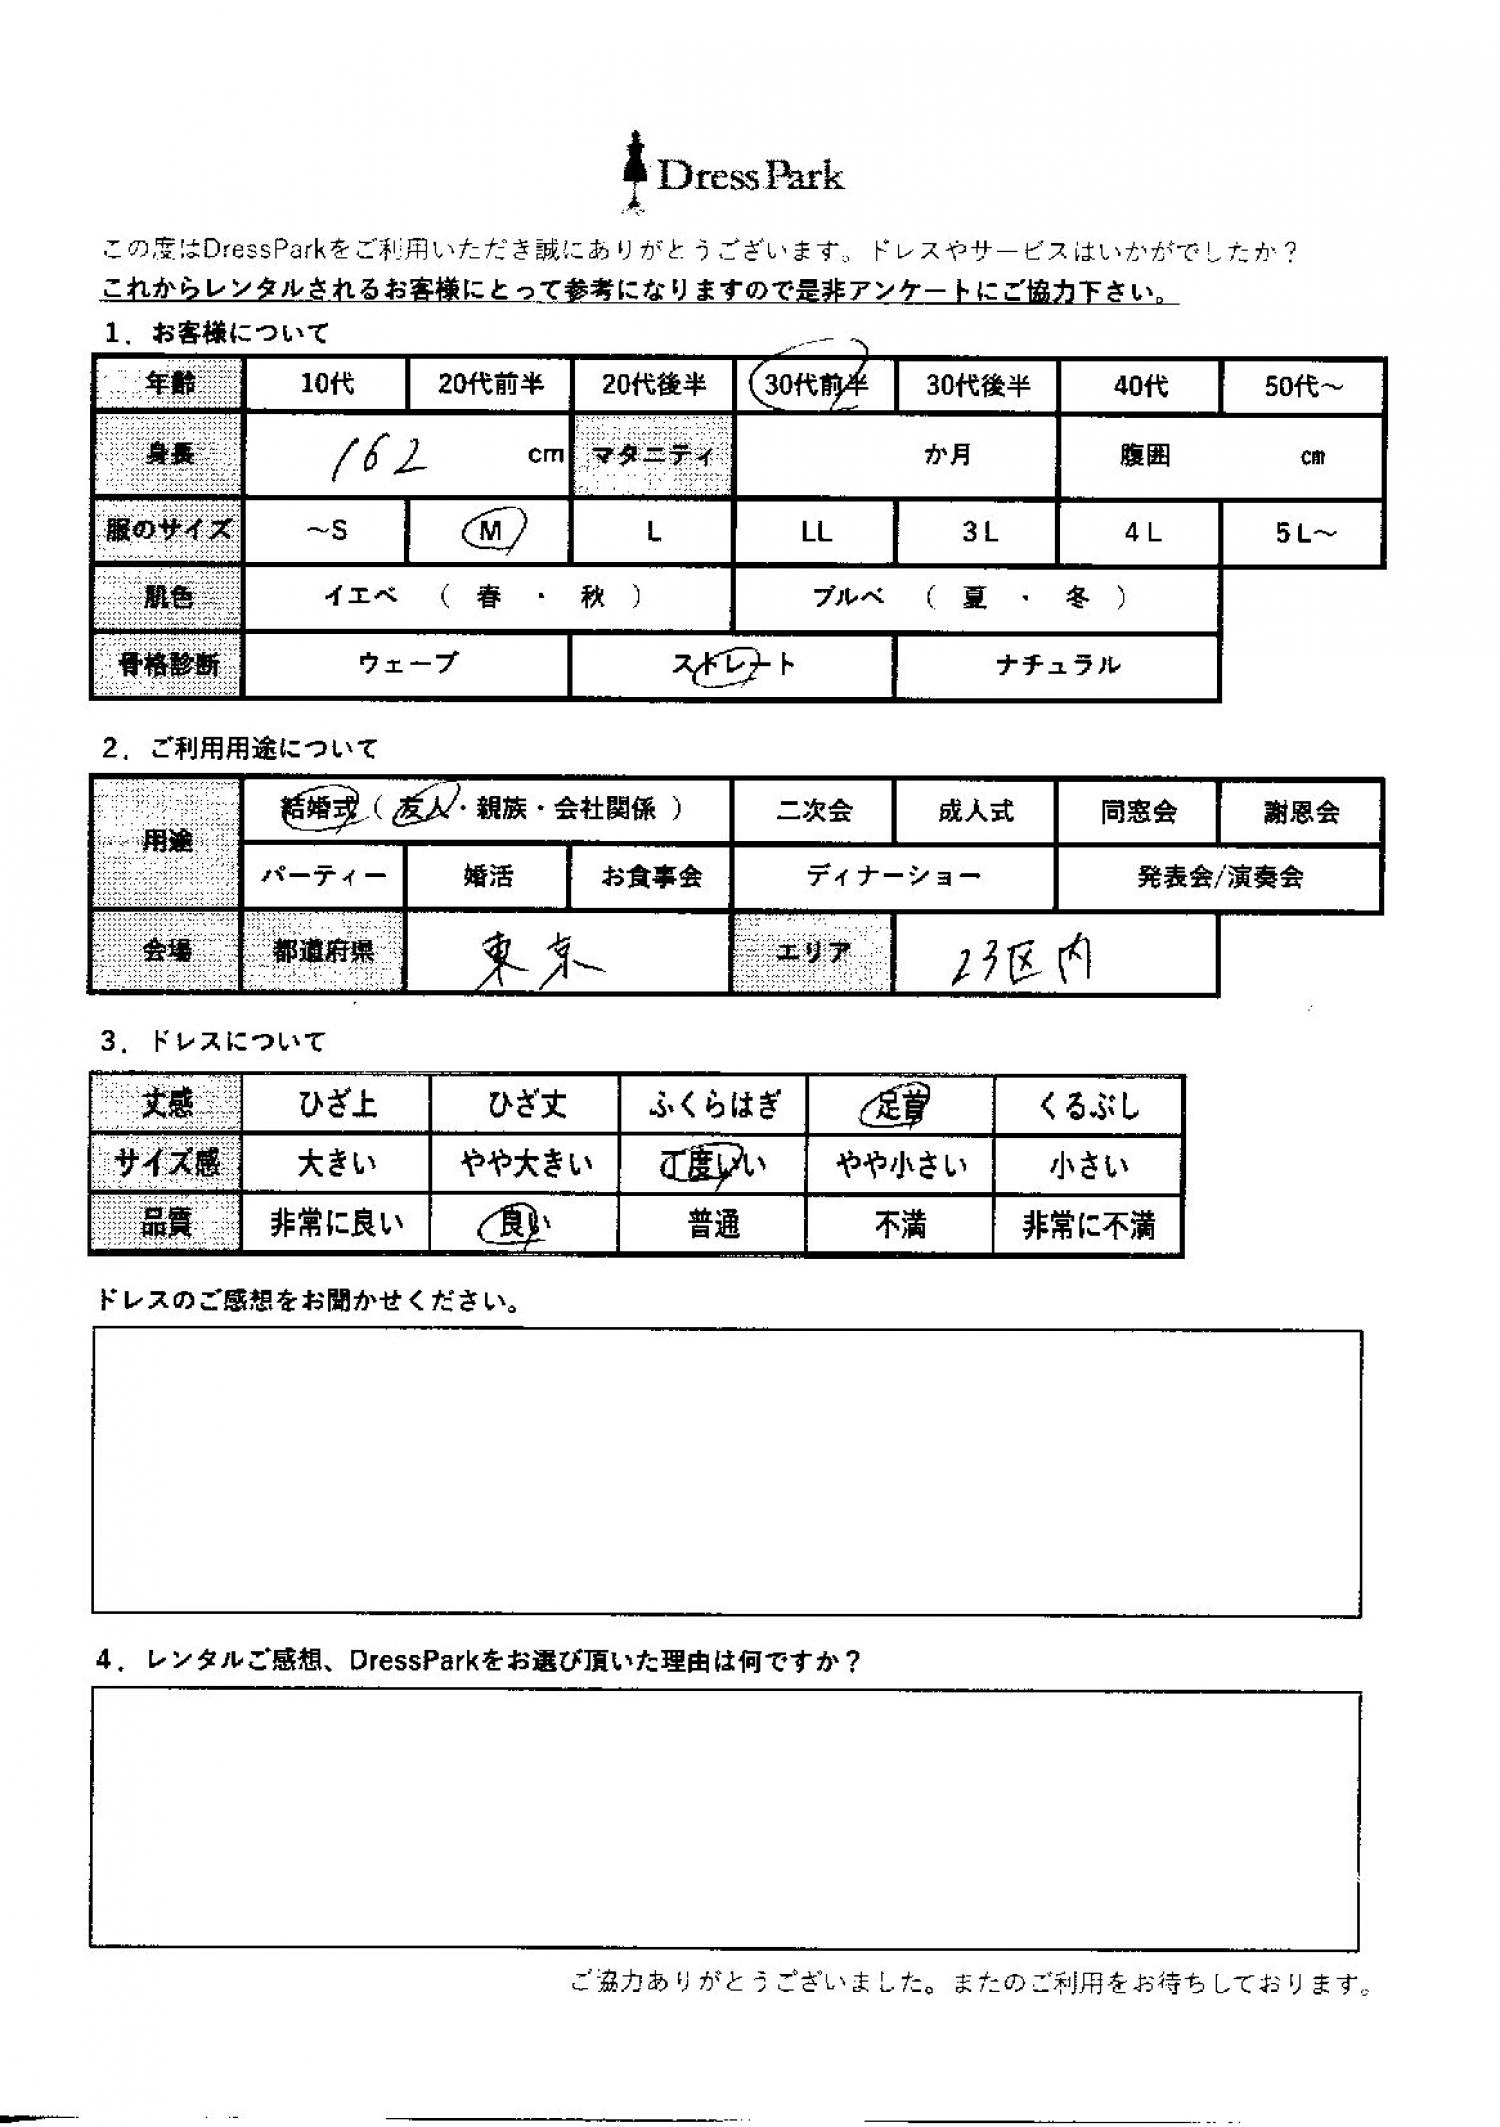 DressPark
この度はDressParkをご利用いただき誠にありがとうございます。ドレスやサービスはいかがでしたか？
これからレンタルされるお客様にとって参考になりますので是非アンケートにご協力下さい。
1．お客様について
年齢 10代 20代前半 20代後半 30代前半 30代後半 40代 50代～
身長 162 cm マタニティ か月 腹囲 cm
服のサイズ ～S M L LL 3L 4L 5L～
肌色 イエベ （ 春 ・ 秋 ） ブルベ （ 夏 ・ 冬 ）
骨格診断 ウェーブ ストレート ナチュラル
2．ご利用用途について
用途 結婚式（ 友人・親族・会社関係 ） 二次会 成人式 同窓会 謝恩会
パーティー 婚活 お食事会 ディナーショー 発表会/演奏会
会場 都道府県 東京 エリア 23区内
3．ドレスについて
丈感 ひざ上 ひざ丈 ふくらはぎ 足首 くるぶし
サイズ感 大きい やや大きい 丁度いい やや小さい 小さい
品質 非常に良い 良い 普通 不満 非常に不満
ドレスのご感想をお聞かせください。
4．レンタルご感想、DressParkをお選び頂いた理由は何ですか？
ご協力ありがとうございました。またのご利用をお待ちしております。